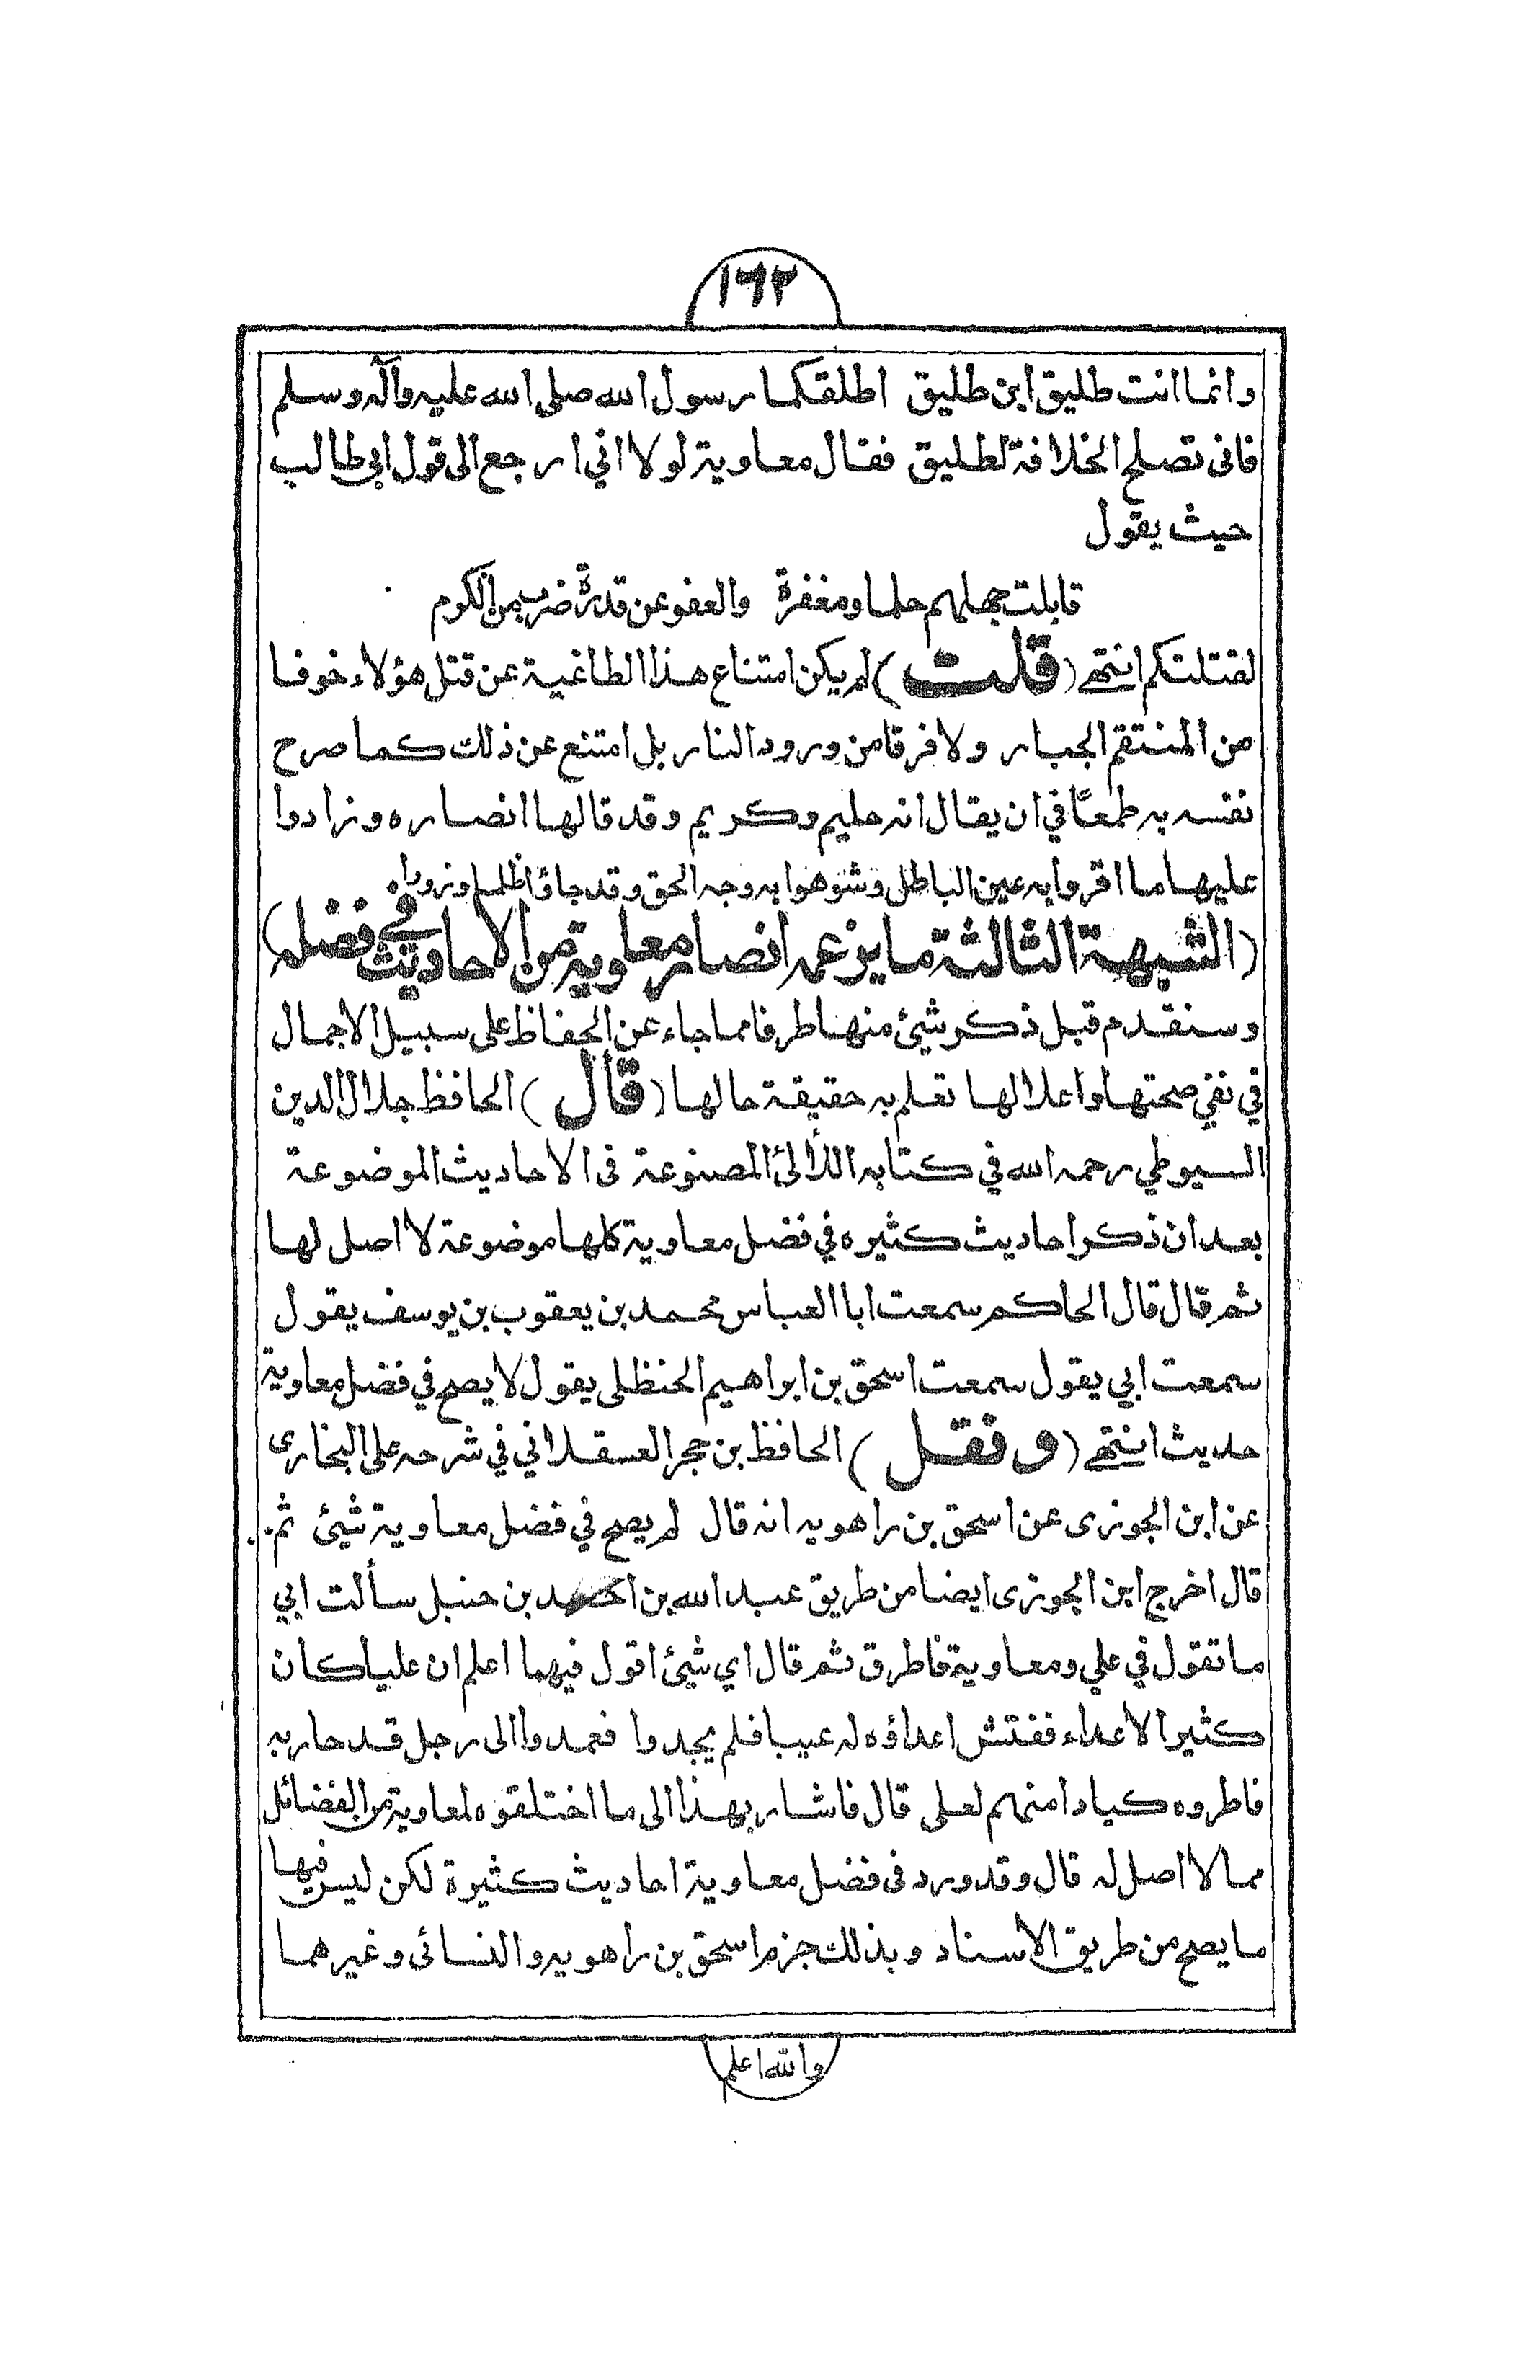 ١٦٢
وانما انت طليق ابن طليق اطلقكما رسول الله صلى الله عليه وآله وسلم
فانى تصلح الخلافة لطليق فقال معاوية لولا اني ارجع الى قول ابي طالب
حيث يقول
قابلت جهلهم حلما ومغفرة والعفو عن قدرة ضرب من الكرم
لقتلتكم انتهى (قلت) لم يكن امتناع هذا الطاغية عن قتل هؤلاء خوفا
من المنتقم الجبار ولا فرقا من ورود النار بل امتنع عن ذلك كما صرح
نفسه به طمعًا في ان يقال انه حليم وكريم وقد قالها انصاره وزادوا
عليها ما اقروا به عين الباطل وشوهوا به وجه الحق وقد جاؤا ظلما وزورا
(الشبهة الثالثة ما يزعمه انصار معاوية من الاحاديث في فضله)
وسنقدم قبل ذكر شيئ منها طرفا مما جاء عن الحفاظ على سبيل الاجمال
في نفي صحتها واعلالها تعلم به حقيقة حالها (قال) الحافظ جلال الدين
السيوطي رحمه الله في كتابه اللألئ المصنوعة فى الاحاديث الموضوعة
بعد ان ذكر احاديث كثيره في فضل معاوية كلها موضوعة لا اصل لها
ثم قال قال الحاكم سمعت ابا العباس محمد بن يعقوب بن يوسف يقول
سمعت ابي يقول سمعت اسحق بن ابراهيم الحنظلى يقول لا يصح في فضل معاوية
حديث انتهى (ونقل) الحافظ بن حجر العسقلاني في شرحه على البخارى
عن ابن الجوزى عن اسحق بن راهويه انه قال لم يصح في فضل معاوية شيئ ثم
قال اخرج ابن الجوزى ايضا من طريق عبد الله بن احمد بن حنبل سألت ابي
ما تقول في علي ومعاوية فاطرق ثم قال اي شيئ اقول فيهما اعلم ان عليا كان
كثير الاعداء ففتش اعداؤه له عيبا فلم يجدوا فعمدوا الى رجل قد حاربه
فاطروه كيادا منهم لعلى قال فاشار بهذا الى ما اختلقوه لمعاوية من الفضائل
مما لا اصل له قال وقد ورد فى فضل معاوية احاديث كثيرة لكن ليس فيها
ما يصح من طريق الاسناد وبذلك جزم اسحق بن راهويه والنسائى وغيرهما
والله اعلم